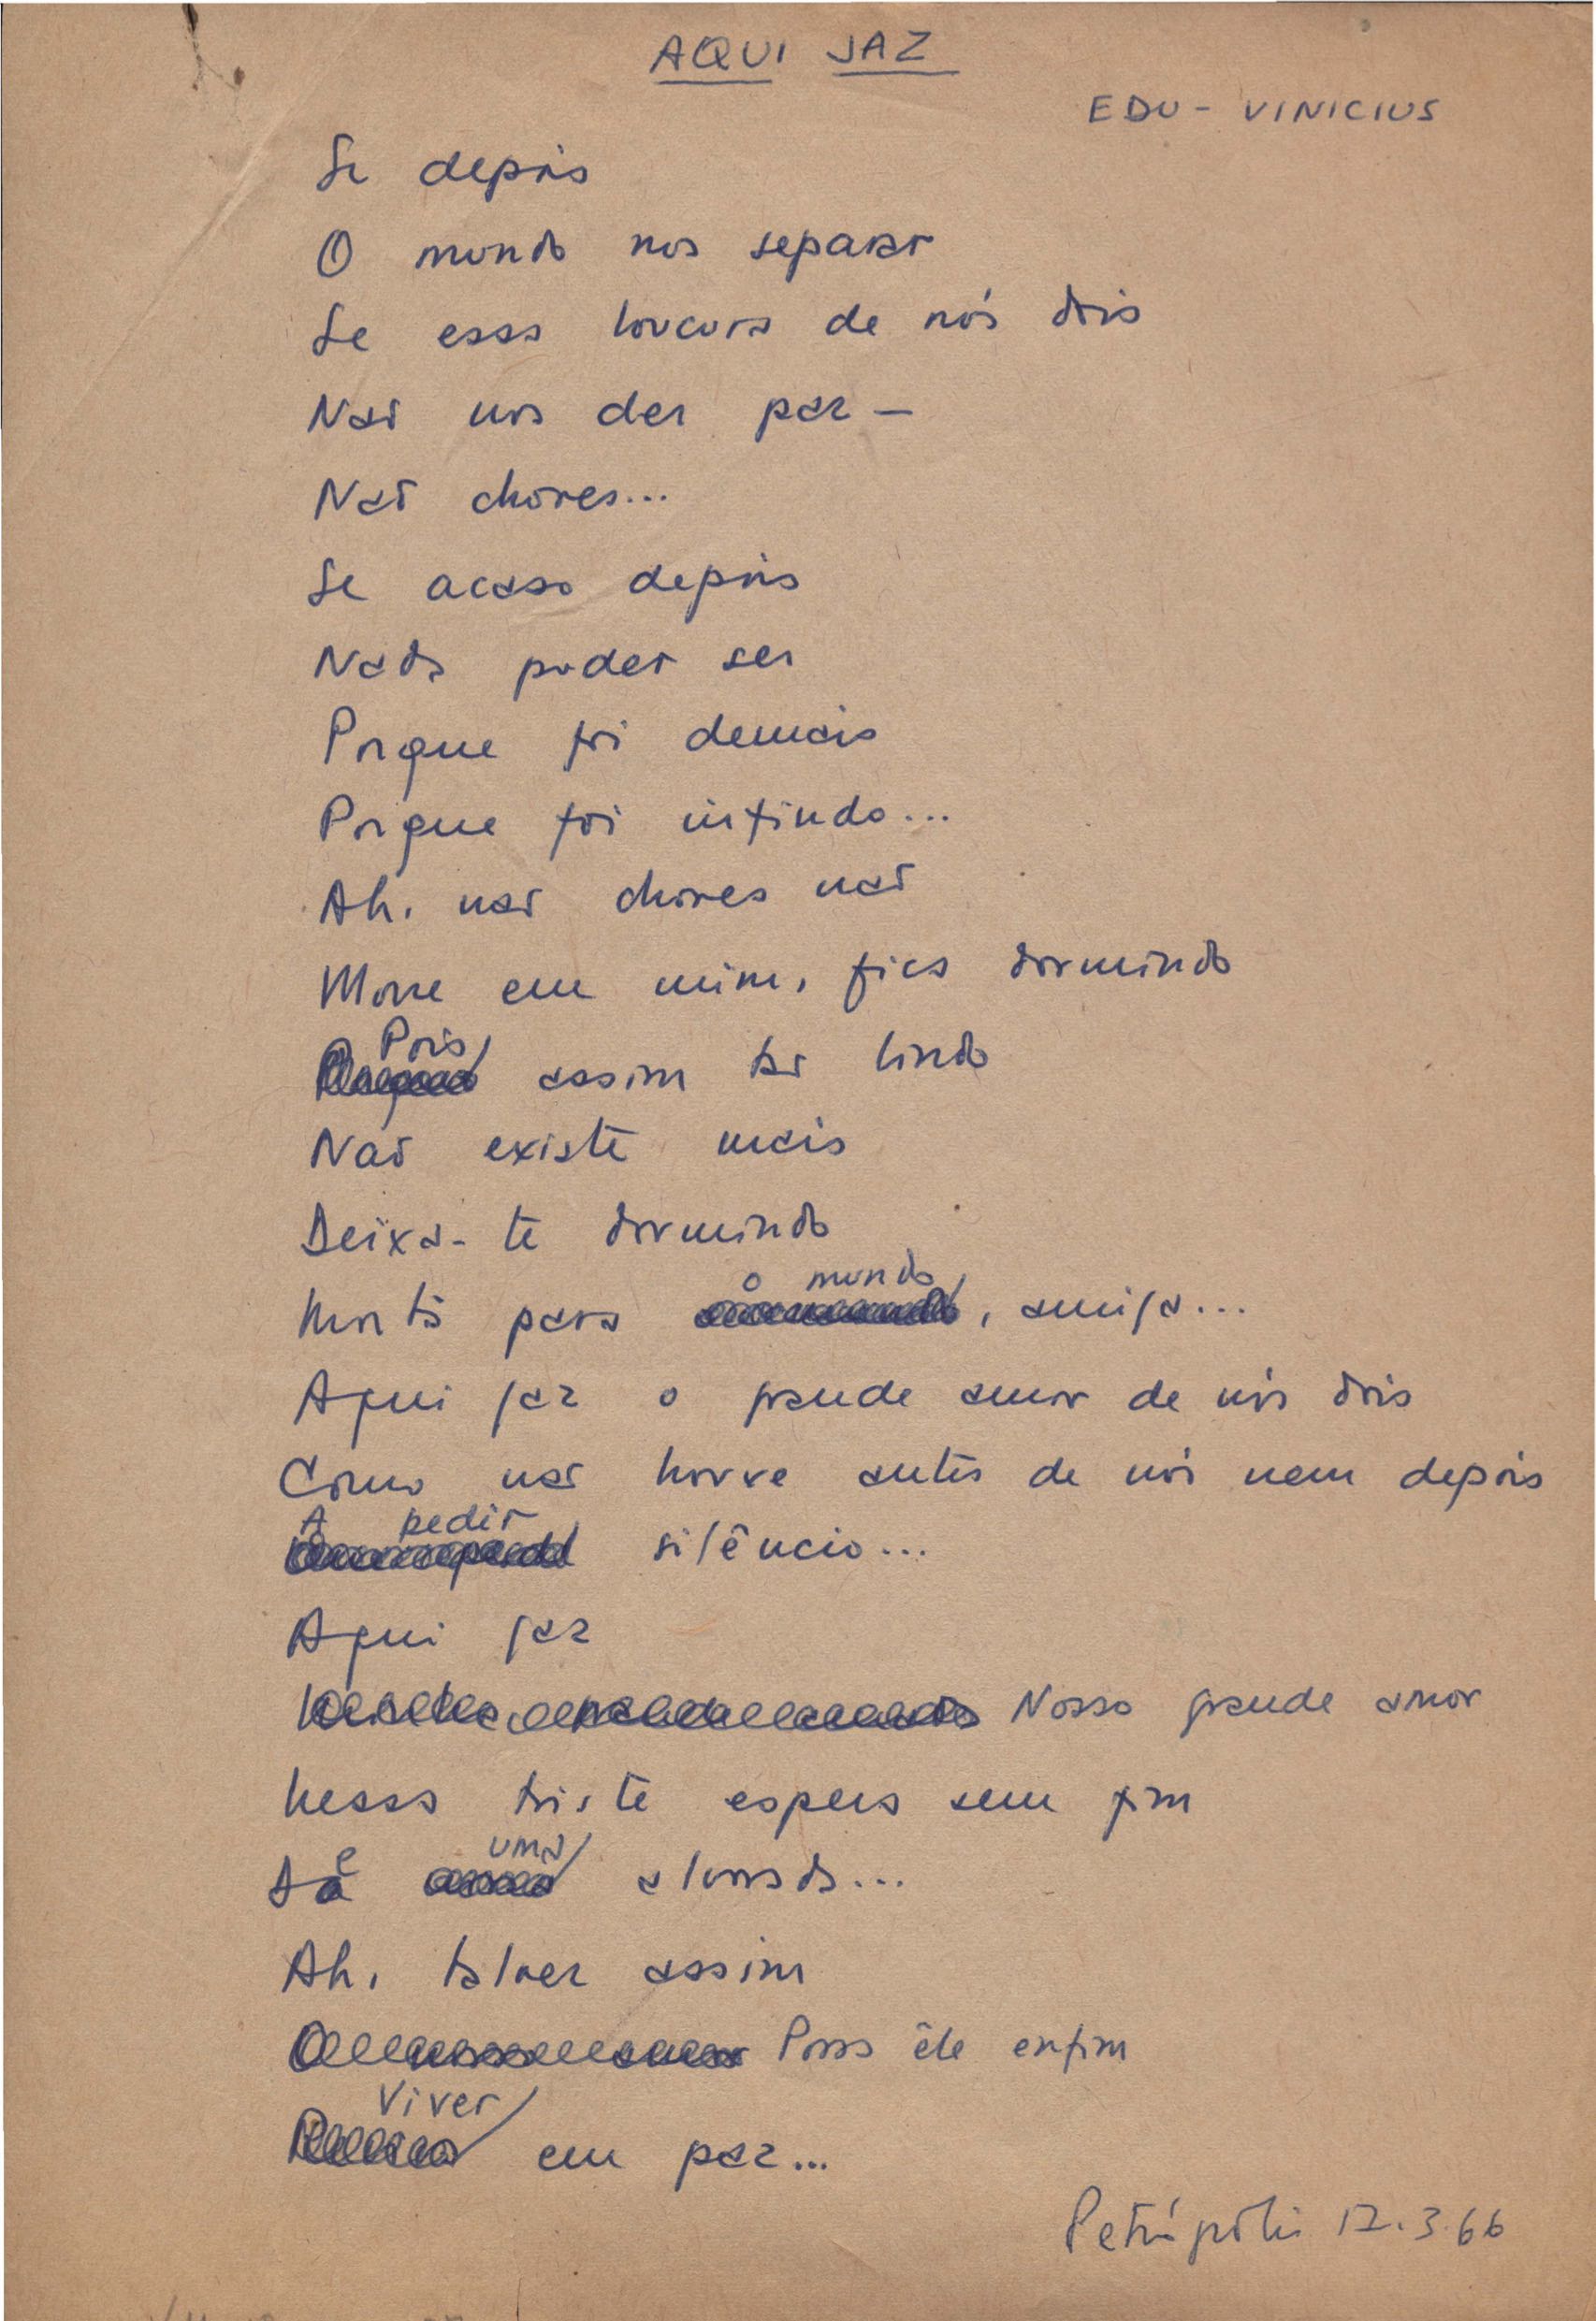 AQUI JAZ
EDU - VINICIUS
Se depois
O mundo nos separar
Se essa loucura de nós dois
Não nos der paz —
Não chores...
Se acaso depois
Nada puder ser
Porque foi demais
Porque foi infindo...
Ah, não chores não
Morre em mim, fica dormindo
Pois assim tão lindo
Não existe mais
Deixa-te dormindo
Morta para o mundo, amiga...
Aqui jaz o grande amor de nós dois
Como não houve antes de nós nem depois
A pedir silêncio...
Aqui jaz
Nosso grande amor
Nessa triste espera sem fim
De uma alvorada...
Ah, talvez assim
Possa êle enfim
Viver em paz...
Petrópolis 12.3.66